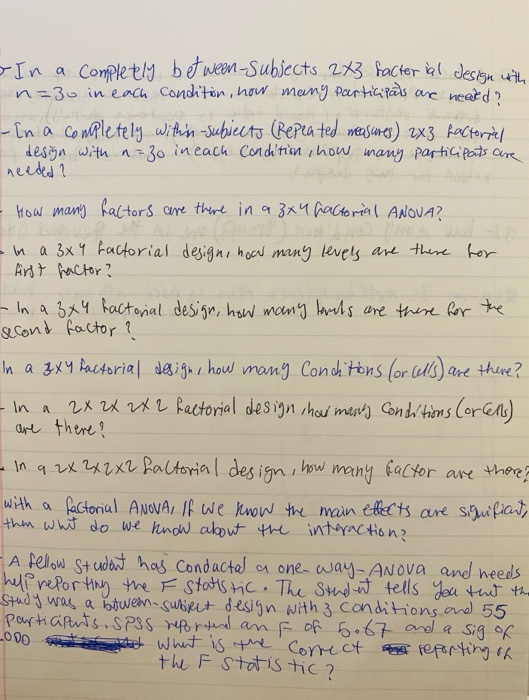 - In a completely between-subjects 2x3 factorial design with
n=30 in each condition, how many participats are needed?
- In a completely within-subjects (Repeated measures) 2x3 factorial
design with n=30 in each condition, how many participats are
needed?
- How many factors are there in a 3x4 factorial ANOVA?
- In a 3x4 factorial design, how many levels are there for
first factor?
- In a 3x4 factorial design, how many levels are there for the
second factor?
In a 3x4 factorial design, how many Conditions (or cells) are there?
- In a 2x2x2x2 factorial design, how many Conditions (or Cells)
are there?
- In a 2x2x2x2 factorial design, how many factor are there?
with a factorial ANOVA, If we know the main effects are significant,
then what do we know about the interaction?
- A fellow Student has conducted a one-way-ANOVA and needs
help reporting the F statistic. The Student tells you that the
study was a between-subject design with 3 conditions and 55
participants. SPSS reported an F of 5.67 and a sig of
.000 what is the correct reporting of
the F statistic?